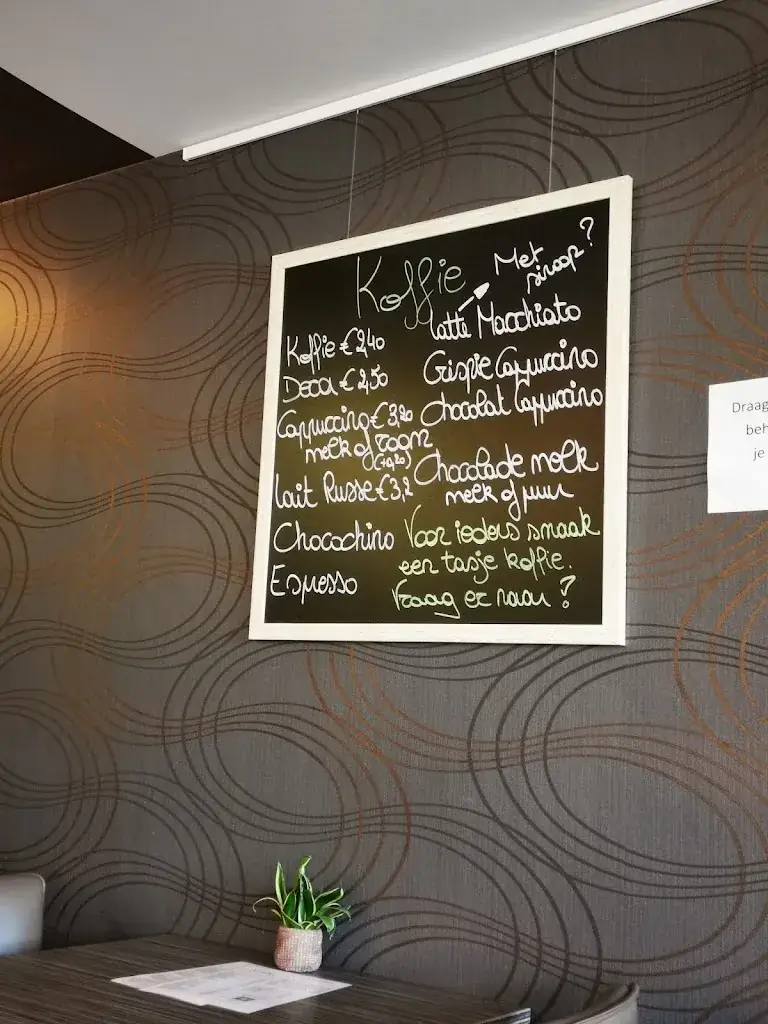 Koffie
Koffie € 2,40
Deca € 2,50
Cappuccino € 3,20
melk of room
(+0,20)
Lait Russe € 3,2
Chocochino
Espresso
Met
siroop?
Latte Macchiato
Crispie Cappuccino
Chocolat Cappuccino
Chocolade melk
melk of puur
Voor ieders smaak
een tasje koffie.
Vraag er naar?
Draag
beh
je